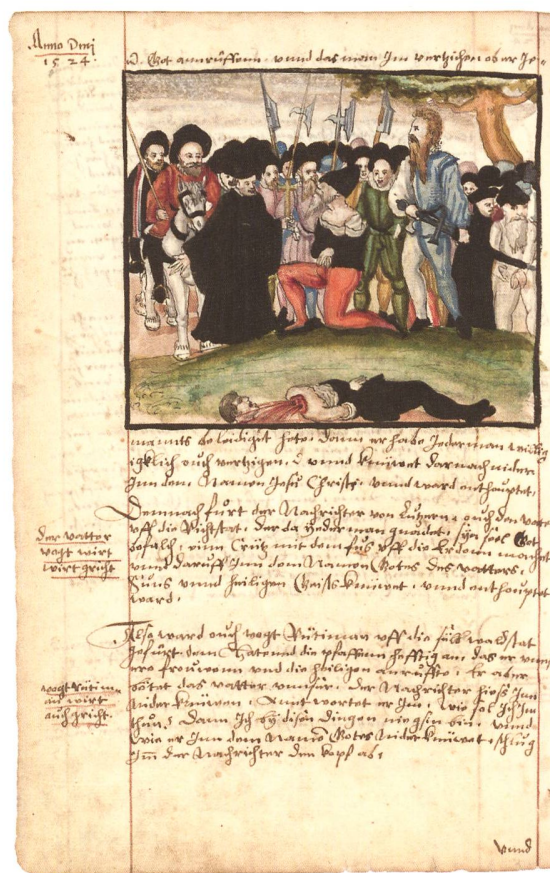 Anno Dmj
1524.
Got anrüffenn. vnnd das man Jm vertzichen ob er Je-
mannts beleidiget hete. dann er habe Jederman willig
igklich ouch vertzigen. vnnd knüwet darnach nider
Jnn dem Namen Jesu Christj. vnnd ward enthouptet.
Demnach furt der Nachrichter von Lutzern ouch den vatter
vff die Richtstat. der da yederman gnadet. syn seel Got
befalch. einn Crütz mit dem fus vff die Erdenn machet
vnnd daruff Jnn dem Namen Gotes des vatters.
Suns vnnd heiligen Geists knüwet. vnnd enthouptet
ward.
der vatter
vogt wirt
wirt gricht
Also ward ouch vogt Rütiman vff die
gefürt. dem die pfaffenn hefftig an das er vnn
sere frouwenn vnd die heiligen anruffte. Er aber
bätet das vatter vnnser. Der Nachrichter hieß Jnn
Nider knüwen. Antwortet er Jm. wie sol Jch Jm
thun. Dann Jch by disen Dingen nie gsin bin. vnnd
wie er Jnn dem Namen Gotes Nider knüwet. schlug
Jm der Nachrichter den kopf ab.
vogt Rütim
an wirt
ouch gricht.
vnnd